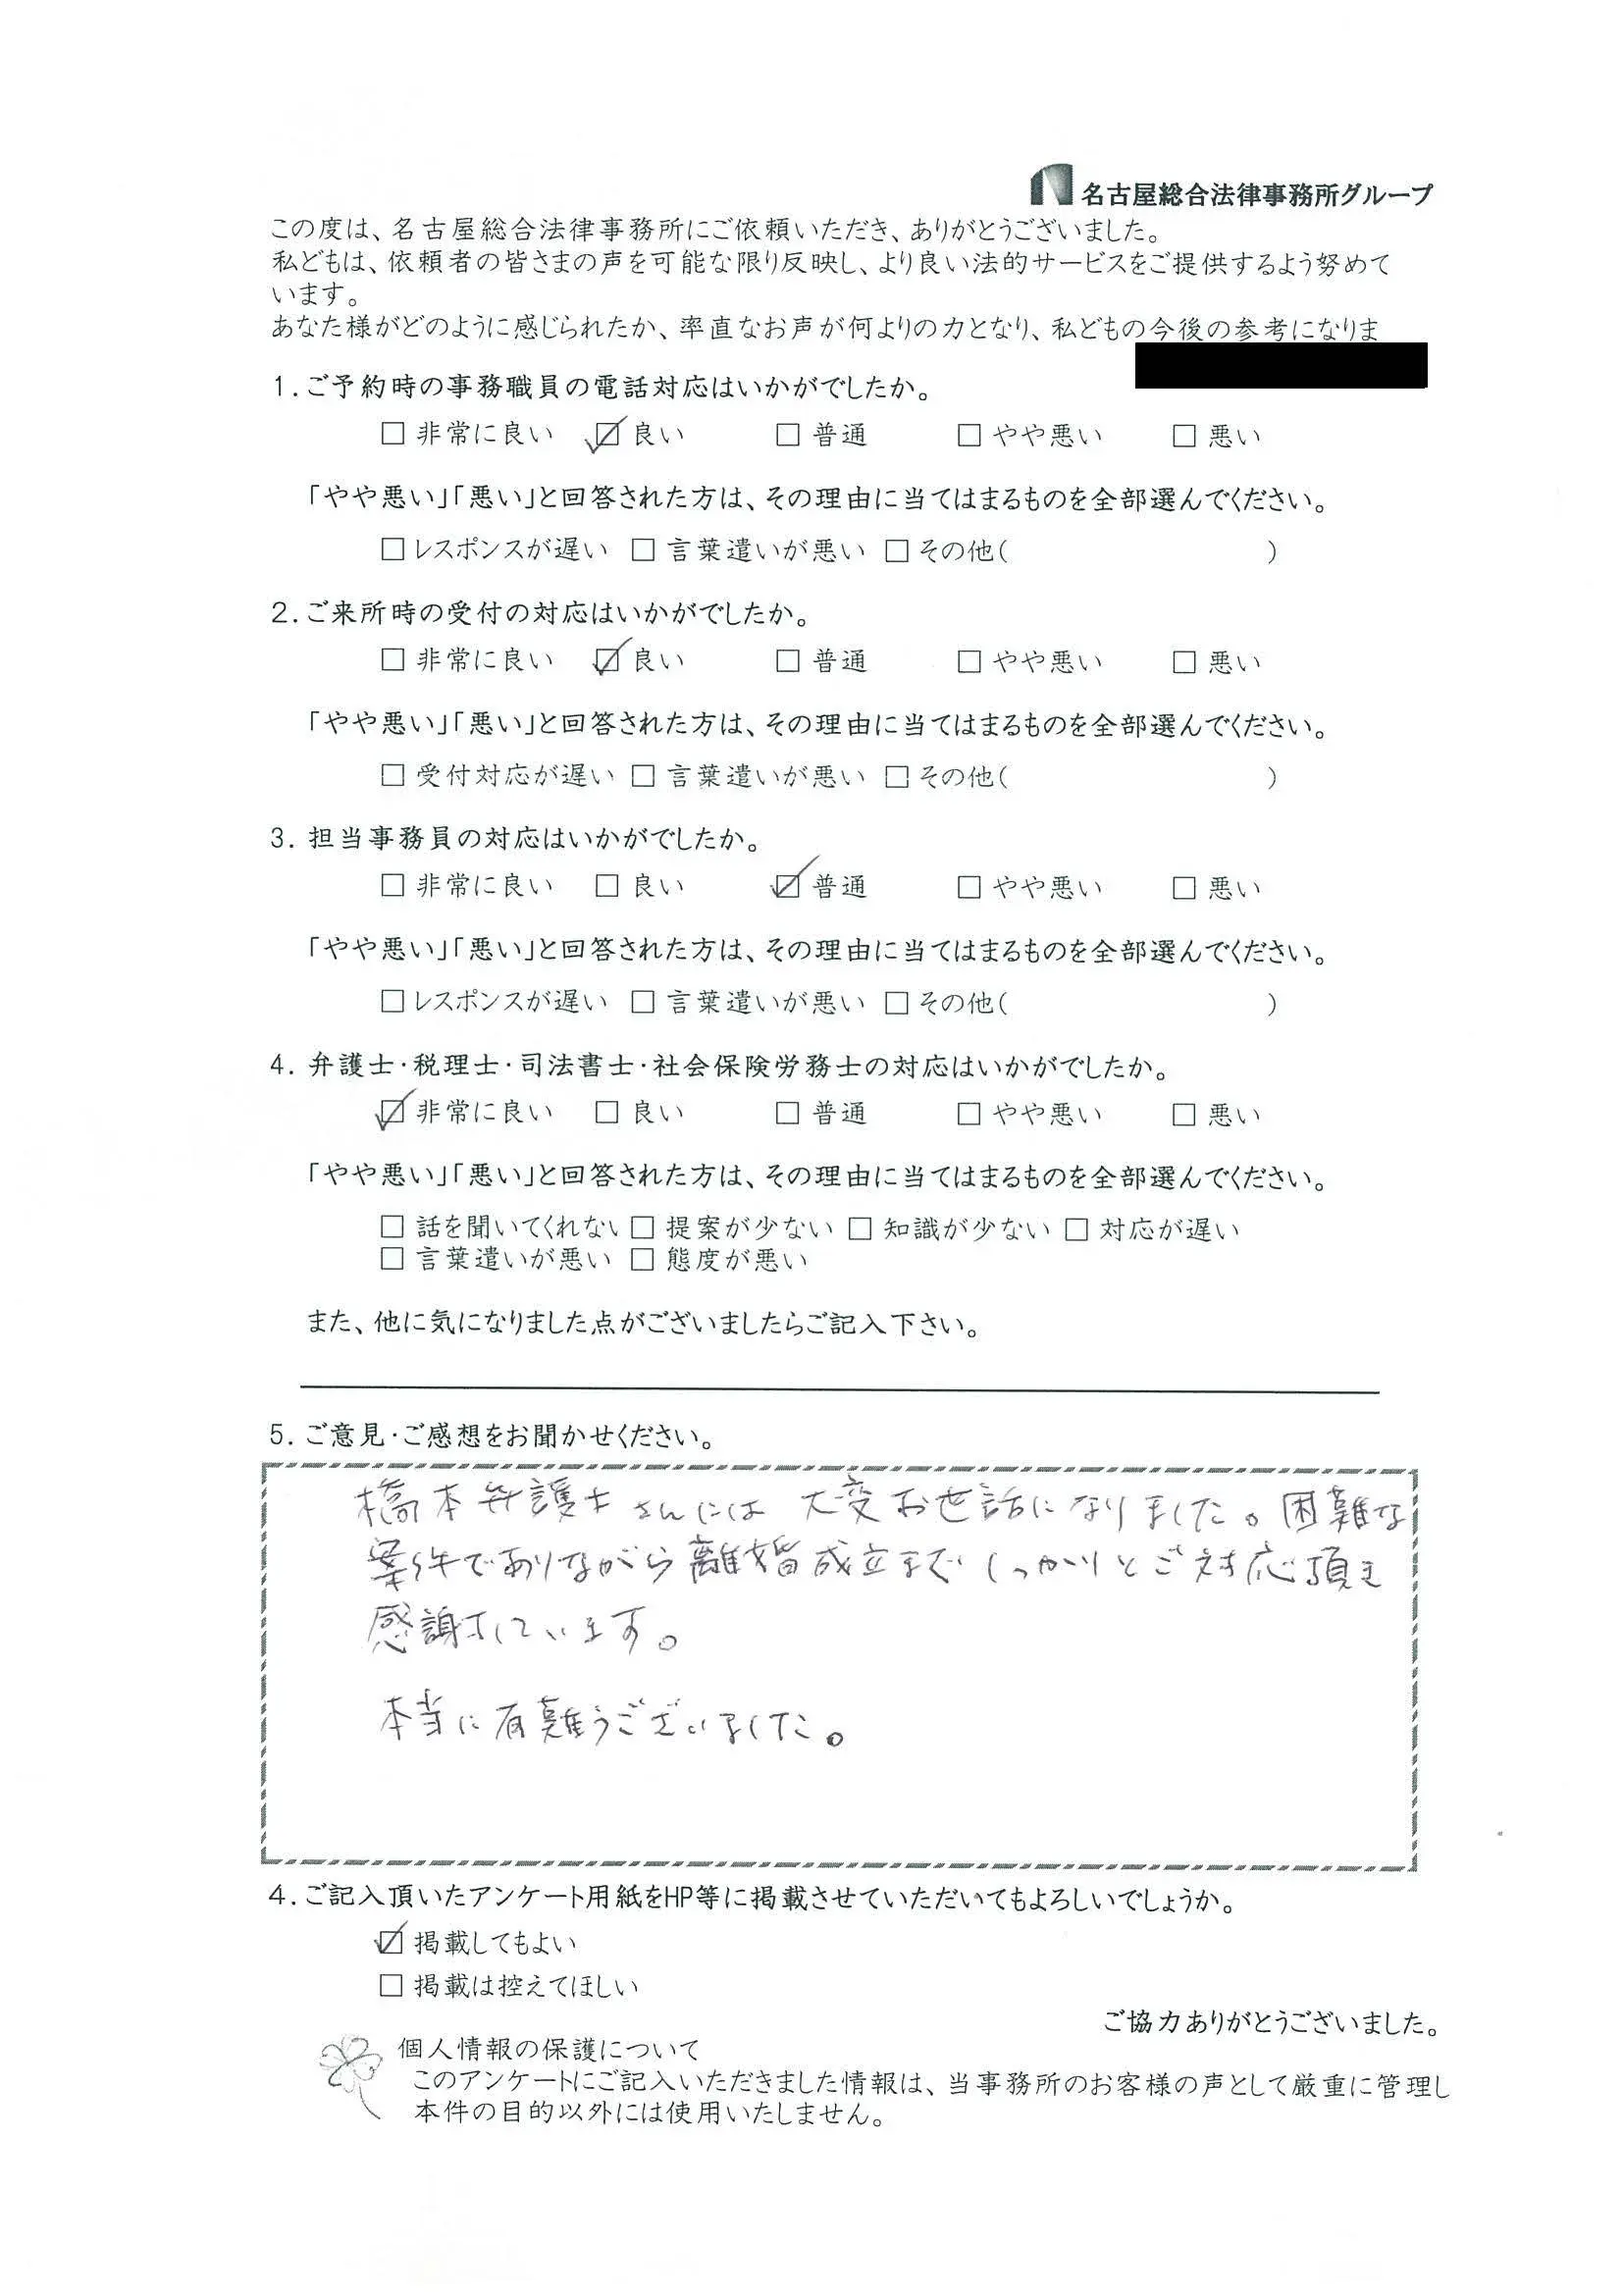 名古屋総合法律事務所グループ
この度は、名古屋総合法律事務所にご依頼いただき、ありがとうございました。
私どもは、依頼者の皆さまの声を可能な限り反映し、より良い法的サービスをご提供するよう努めて
います。
あなた様がどのように感じられたか、率直なお声が何よりの力となり、私どもの今後の参考になりま
1.ご予約時の事務職員の電話対応はいかがでしたか。
□ 非常に良い ☑ 良い □ 普通 □ やや悪い □ 悪い
「やや悪い」「悪い」と回答された方は、その理由に当てはまるものを全部選んでください。
□ レスポンスが遅い □ 言葉遣いが悪い □ その他( )
2.ご来所時の受付の対応はいかがでしたか。
□ 非常に良い ☑ 良い □ 普通 □ やや悪い □ 悪い
「やや悪い」「悪い」と回答された方は、その理由に当てはまるものを全部選んでください。
□ 受付対応が遅い □ 言葉遣いが悪い □ その他( )
3. 担当事務員の対応はいかがでしたか。
□ 非常に良い □ 良い ☑ 普通 □ やや悪い □ 悪い
「やや悪い」「悪い」と回答された方は、その理由に当てはまるものを全部選んでください。
□ レスポンスが遅い □ 言葉遣いが悪い □ その他( )
4. 弁護士・税理士・司法書士・社会保険労務士の対応はいかがでしたか。
☑ 非常に良い □ 良い □ 普通 □ やや悪い □ 悪い
「やや悪い」「悪い」と回答された方は、その理由に当てはまるものを全部選んでください。
□ 話を聞いてくれない □ 提案が少ない □ 知識が少ない □ 対応が遅い
□ 言葉遣いが悪い □ 態度が悪い
また、他に気になりました点がございましたらご記入下さい。
5.ご意見・ご感想をお聞かせください。
橋本弁護士さんには大変お世話になりました。困難な
案件でありながら離婚成立までしっかりとご対応頂き
感謝しています。
本当に有難うございました。
4.ご記入頂いたアンケート用紙をHP等に掲載させていただいてもよろしいでしょうか。
☑ 掲載してもよい
□ 掲載は控えてほしい
ご協力ありがとうございました。
個人情報の保護について
このアンケートにご記入いただきました情報は、当事務所のお客様の声として厳重に管理し
本件の目的以外には使用いたしません。